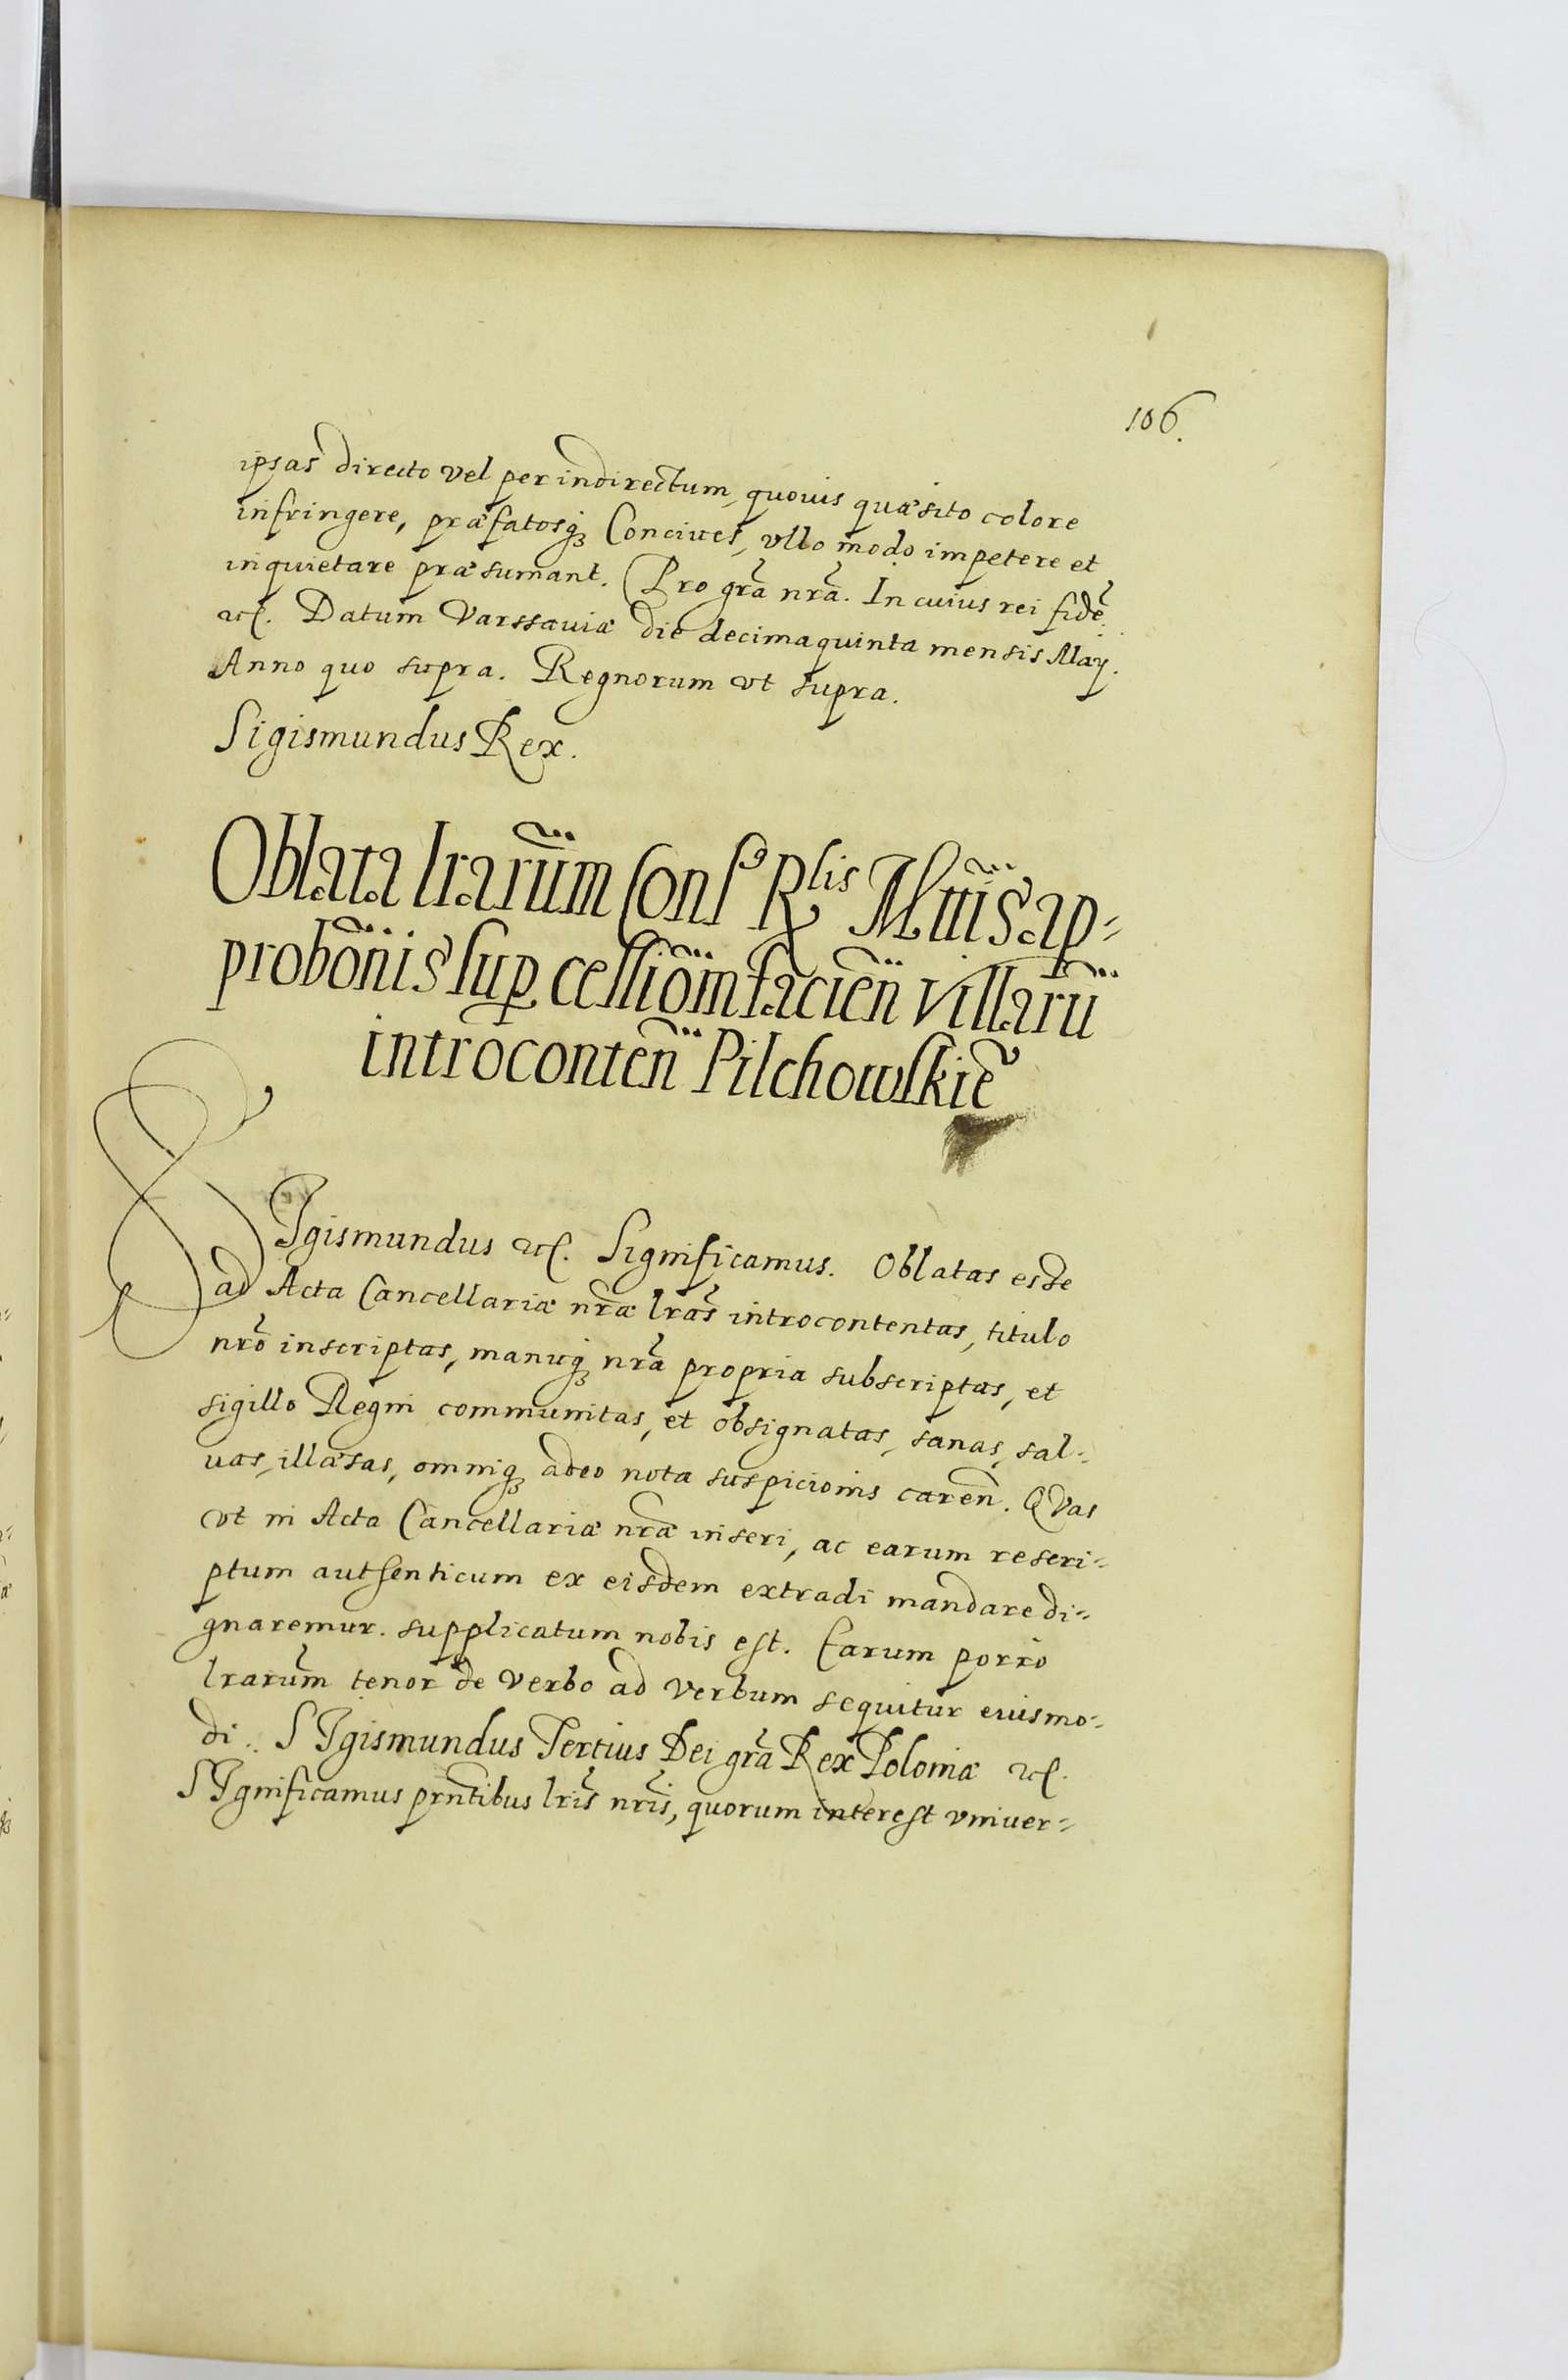 106.
ipsas directo vel per indirectum, quouis quæsito colore
infringere, præfatosq₃ Conciues, vllo modo impetere et
inquietare præsumant. Pro gr̃a nr̃a. In cuius rei fidẽ
etc. Datum Varssauiæ die decimaquinta mensis Maÿ.
Anno quo supra. Regnorum vt supra.
Sigismundus Rex.
Oblata lr̃arum Cons⁹ Rlis Mttis ap=
probõnis sup cessiõm facieñ villarũ
introconteñ Pilchowskiẽ
SIgismundus etc. Significamus. Oblatas esse
ad Acta Cancellariæ nr̃æ lr̃as introcontentas, titulo
nr̃o inscriptas, manuq₃ nr̃a propria subscriptas, et
sigillo Regni communitas, et obsignatas, sanas, sal=
uas, illæsas, omniq₃ adeo nota suspicionis careñ. QVas
vt in Acta Cancellariæ nr̃æ inseri, ac earum rescri=
ptum authenticum ex eisdem extradi mandare di=
gnaremur. supplicatum nobis est. Earum porro
lr̃arum tenor de verbo ad verbum sequitur eiusmo=
di. SIgismundus Tertius Dei gr̃a Rex Poloniæ etc.
SIgnificamus pr̃ntibus lr̃is nr̃is, quorum interest vniuer=